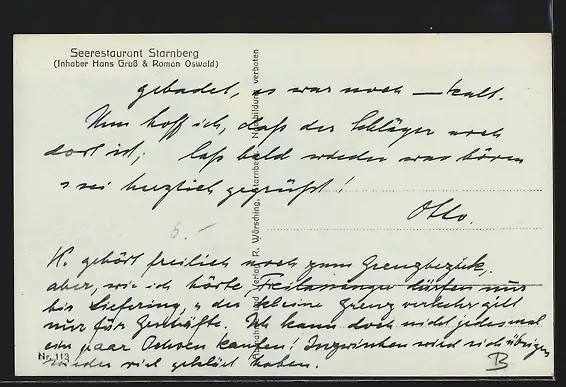 Seerestaurant Starnberg
(Inhaber Hans Gruß & Roman Oswald)
gebadet, es war noch — kalt.
Nun hoff ich, daß der Schläger noch
dort ist; laß bald wieder was hören
u sei herzlich gegrüßt!
Otto.
6.–
K. gehört freilich noch zum Grenzbezirk,
aber, wie ich hörte, Freilassinger dürfen nur
bis Liefering, u der kleine Grenzverkehr gilt
nur für Geschäfte. Ich kann doch nicht jedesmal
ein paar Ochsen kaufen! Inzwischen wird sich übrigens
wieder viel geklärt haben.
Nr. 113
B
Verlag R. Wörsching, Starnberg. Nachbildung verboten